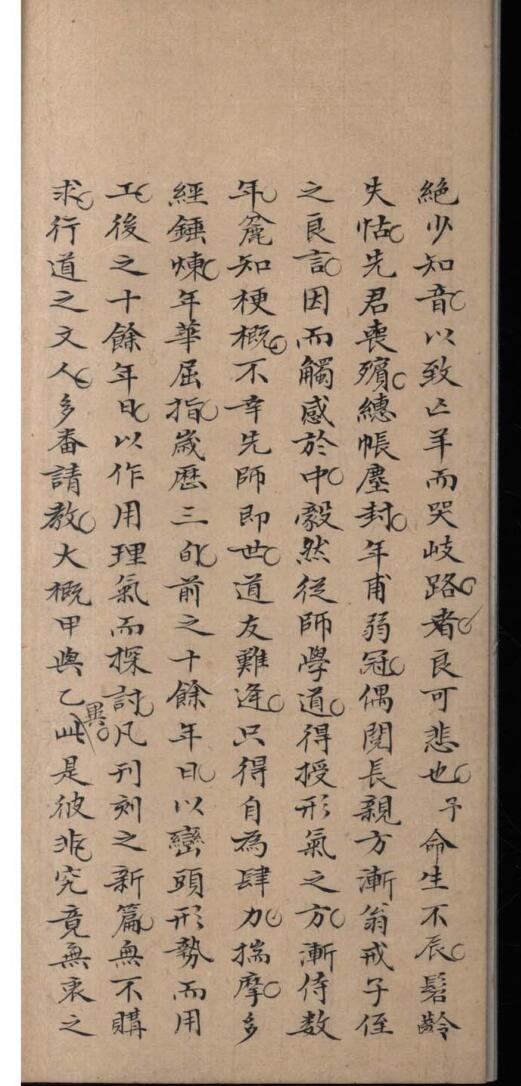 絶少知音以致亡羊而哭歧路者良可悲也予命生不辰髫齡
失怙先君喪殯繐帳塵封年甫弱冠偶閱長親方漸翁戒子侄
之良言因而觸感於中毅然從師學道得授形氣之方漸侍数
年麄知梗概不幸先師即世道友難逢只得自為肆力揣摩多
經錘煉年華屈指歲歷三旬前之十餘年日以巒頭形勢而用
工後之十餘年日以作用理氣而探討凡刊刻之新篇無不購
求行道之文人多番請教大概甲與乙異此是彼非究竟無衷之